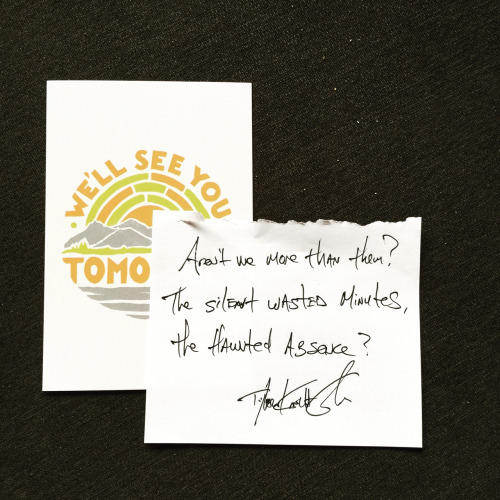 WE'LL SEE YOU
TOMO
Aren't we more than them?
The silent wasted minutes,
the Haunted Absence?